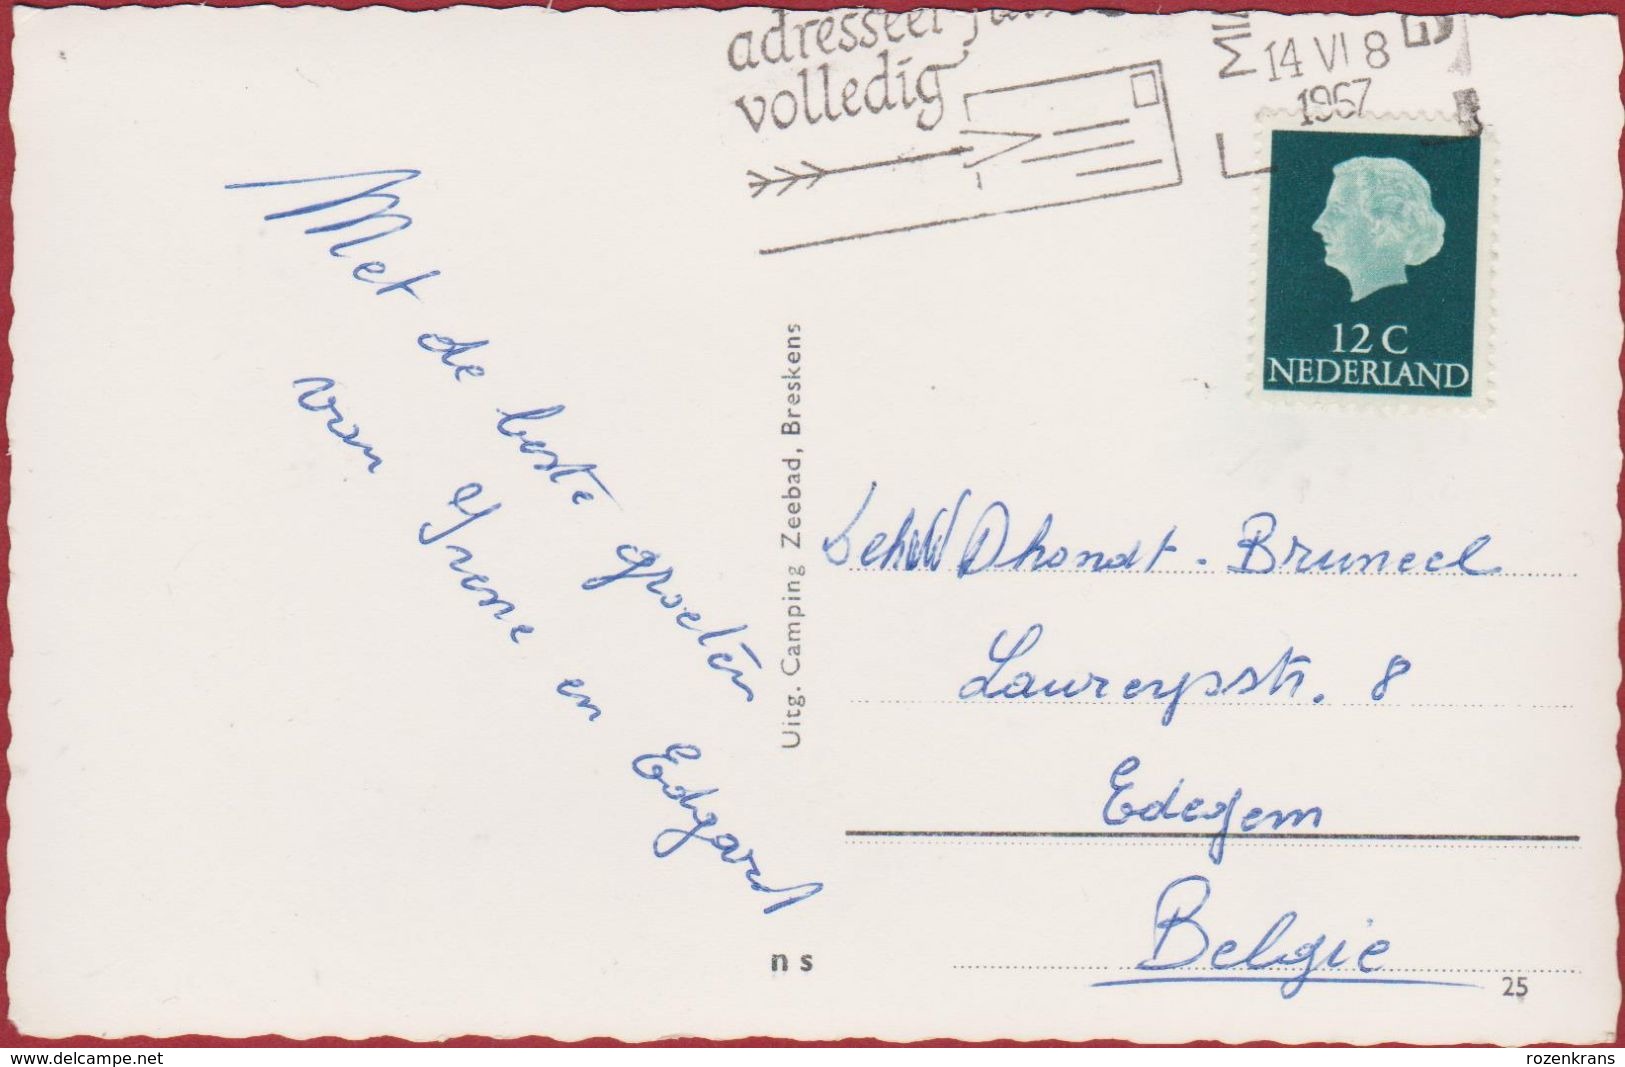 adresseer
volledig
14 VI 8
1967
12 C
NEDERLAND
Met de beste groeten
van Yrene en Edgard
Uitg. Camping Zeebad, Breskens
Dhondt - Bruneel
Laureysstr. 8
Edegem
België
n s
25
www.delcampe.net
rozenkrans